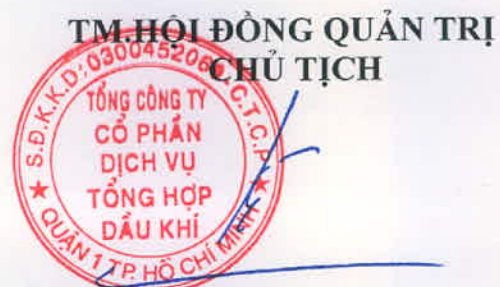 TM.HỘI ĐỒNG QUẢN TRỊ
CHỦ TỊCH
S.Đ.K.K.D:0300452060-C.T.C.P
TỔNG CÔNG TY
CỔ PHẦN
DỊCH VỤ
TỔNG HỢP
DẦU KHÍ
QUẬN 1 TP. HỒ CHÍ MINH